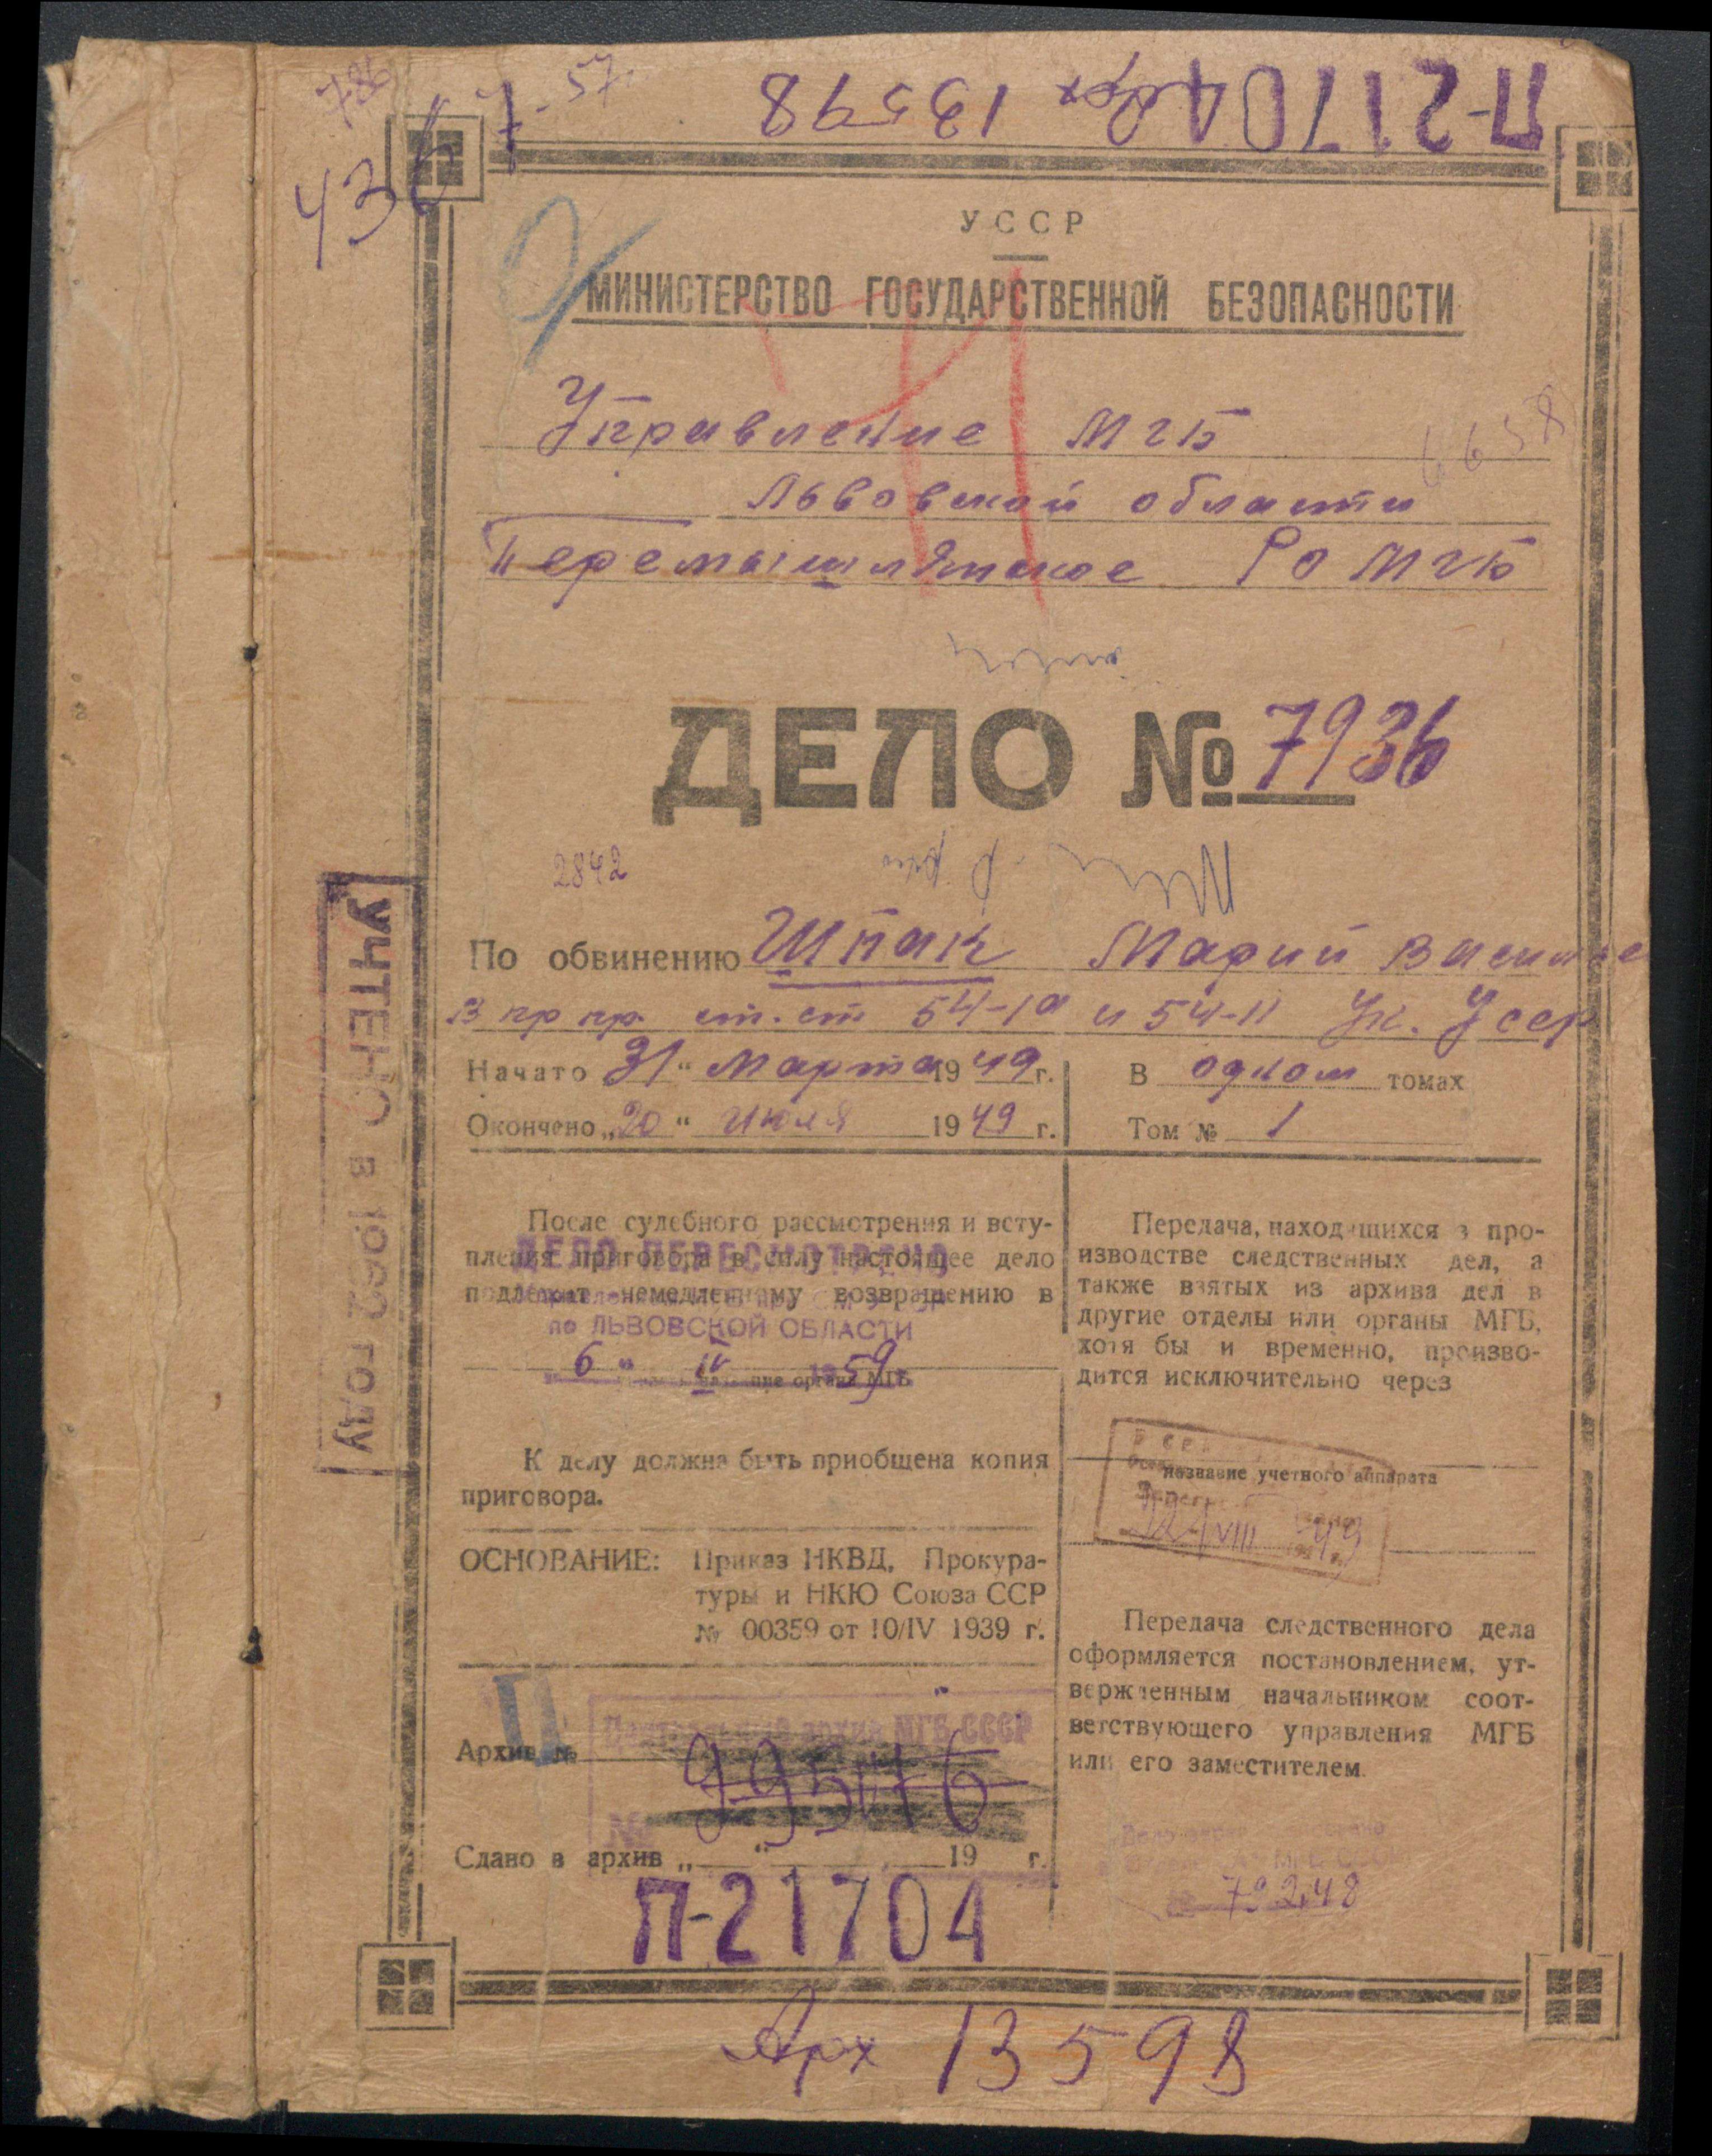 П-21704 Арх 13598
7-57.
436
УССР
МИНИСТЕРСТВО ГОСУДАРСТВЕННОЙ БЕЗОПАСНОСТИ
Управление МГБ
Львовской области
Перемышлянское РО МГБ
4658
ДЕЛО № 7936
2842
По обвинению Шпак Марии Василье
В пр пр. ст. ст 54-1а и 54-11 Ук. Усср
Начато 31 " Марта 1949 г.
В одном томах
Окончено „20 " Июля 1949 г.
Том № 1
УЧТЕНО В 1962 ГОДУ
После судебного рассмотрения и всту-
пления приговора в силу настоящее дело
подлежит немедленному возвращению в
ДЕЛО ПЕРЕСМОТРЕНО
по ЛЬВОВСКОЙ ОБЛАСТИ
6 " IV 1959
название органа МГБ
К делу должна быть приобщена копия
приговора.
ОСНОВАНИЕ: Приказ НКВД, Прокура-
туры и НКЮ Союза ССР
№ 00359 от 10/IV 1939 г.
Передача, находящихся в про-
изводстве следственных дел, а
также взятых из архива дел в
другие отделы или органы МГБ,
хотя бы и временно, произво-
дится исключительно через
название учетного аппарата
VIII 49
Передача следственного дела
оформляется постановлением, ут-
вержденным начальником соот-
ветствующего управления МГБ
или его заместителем.
Центральный архив МГБ СССР
Архив №
№ 995476
Сдано в архив „ " 19 г.
Дело
792.48
П-21704
Арх 13598